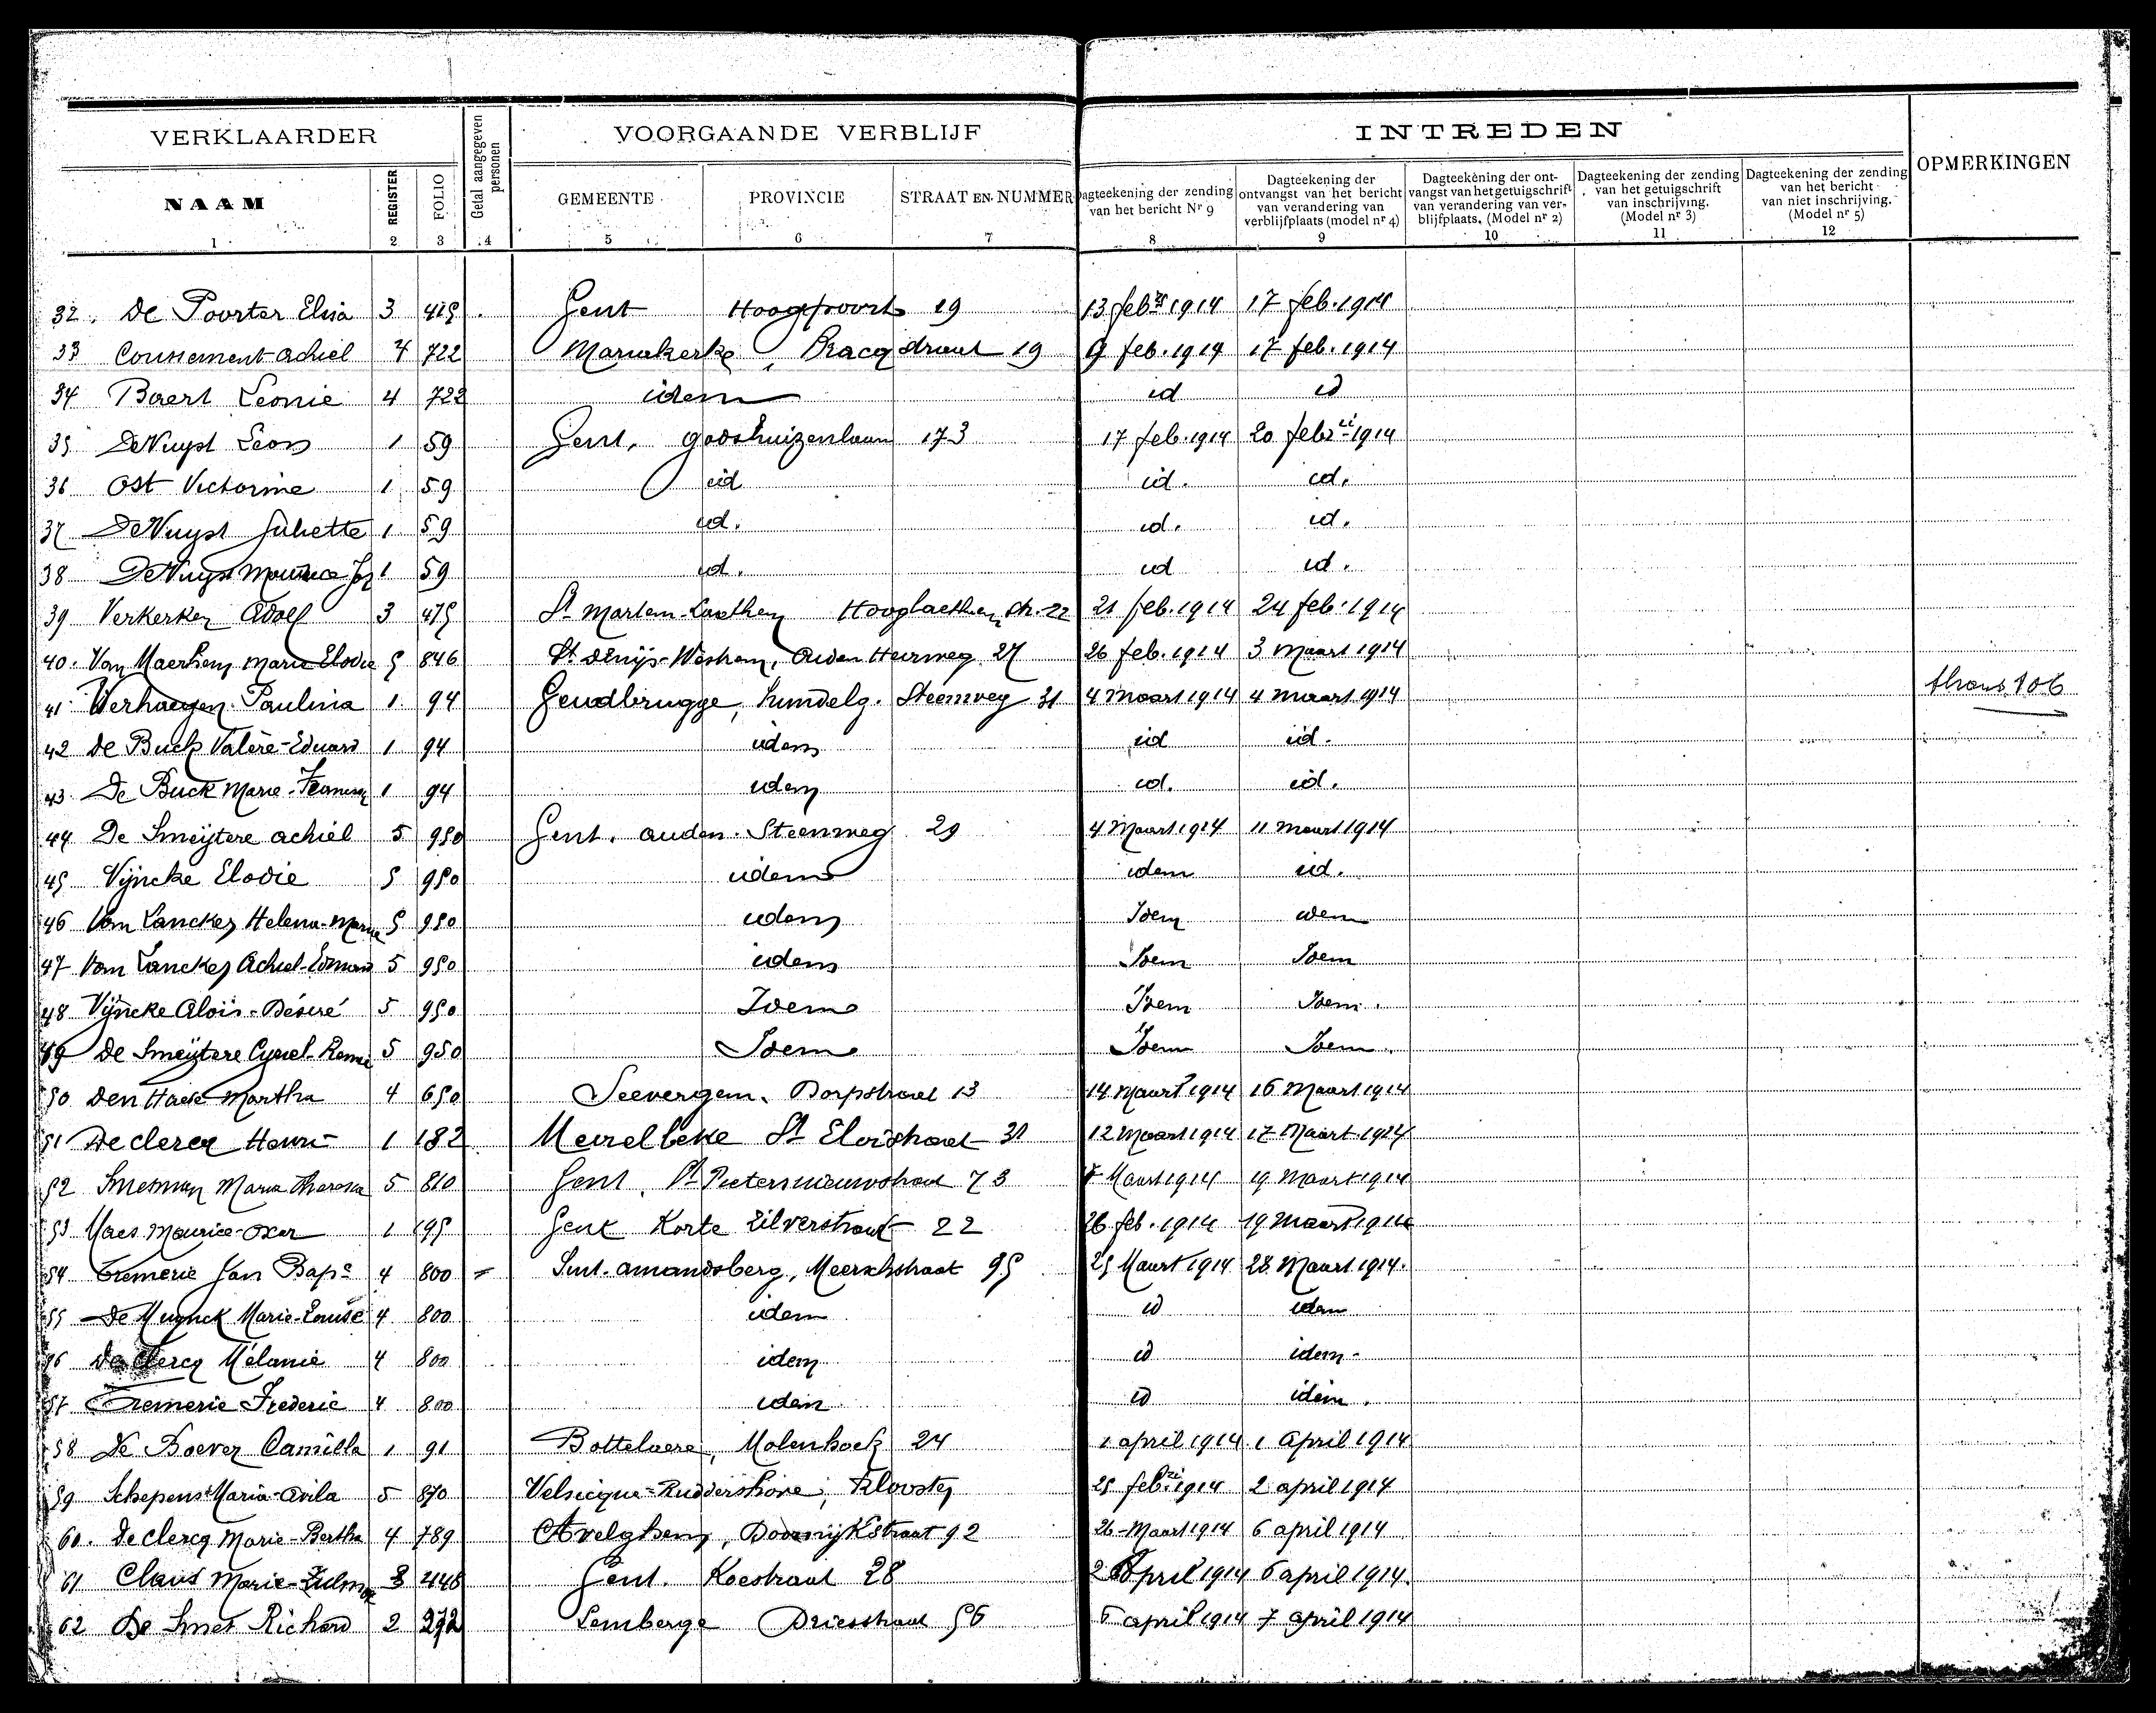 VERKLAARDER Getal aangegeven personen VOORGAANDE VERBLIJF INTREDEN OPMERKINGEN
NAAM REGISTER FOLIO GEMEENTE PROVINCIE STRAAT EN NUMMER Dagteekening der zending van het bericht Nr 9 Dagteekening der ontvangst van het bericht van verandering van verblijfplaats (model nr 4) Dagteekening der ontvangst van het getuigschrift van verandering van verblijfplaats. (Model nr 2) Dagteekening der zending van het getuigschrift van inschrijving. (Model nr 3) Dagteekening der zending van het bericht van niet inschrijving. (Model nr 5)
1 2 3 4 5 6 7 8 9 10 11 12
32. De Poorter Elisa 3 415 Gent Hoogpoort 19 13 febri 1914 17 feb. 1914
33 Coussement Achiel 4 722 Mariakerke, Bracqstraat 19 9 feb. 1914 17 feb. 1914
34 Baert Leonie 4 722 idem id id
35 DeNuyst Leon 1 59 Gent, godshuizenlaan 173 17 feb. 1914 20 febri 1914
36 Ost Victorine 1 59 id id. id.
37 DeNuyst Juliette 1 59 id. id. id.
38 DeNuyst Maurice Joz 1 59 id. id id.
39 Verkerken Adolf 3 475 St Martem-Laethem Hooglaethem str. 22 21 feb. 1914 24 feb. 1914
40. Van Maerhem Marie Elodie 5 846 St Denijs-Westrem, Ouden Heirweg 27 26 feb. 1914 3 Maart 1914
41 Verhaegen Paulina 1 94 Gendbrugge, hundelg. Steenweg 31 4 Maart 1914 4 maart 1914 thans 106
42 De Buck Valère-Eduard 1 94 idem id id.
43 De Buck Marie- 1 94 idem id. id.
44 De Smeijtere achiel 5 950 Gent. ouden. Steenweg 29 4 Maart 1914 11 maart 1914
45 Vijncke Elodie 5 950 idem idem id.
46 Van Lancker Helena-Marie 5 950 idem Idem idem
47 Van Lancker Achiel-Edmond 5 950 idem Idem Idem
48 Vijncke Aloïs-Désiré 5 950 Idem Idem Idem.
49 De Smeijtere Cyriel-Remi 5 950 Idem Idem Idem.
50 Den Haese Martha 4 650 Seevergem. Dorpstraat 13 14 Maart 1914 16 Maart 1914
51 Declercq Henri 1 182 Meirelbeke St Eloistraat 31 12 Maart 1914 17 Maart 1914
52 Smetman Maria Theresia 5 810 Gent. St Pietersnieuwstraat 73 7 Maart 1914 19 Maart 1914
53 Maes Maurice-Oscar 1 195 Gent Korte Zilverstraat 22 26 feb. 1914 19 maart 1914
54 Cremerie Jan Bapte 4 800 Sint. amandsberg, Meerschstraat 95 25 Maart 1914 28 Maart 1914.
55 De Muynck Marie-Louise 4 800 idem id idem
56 De Clercq Mélanie 4 800 idem id idem
57 Cremerie Frederic 4 800 idem id idem.
58 De Boever Camilla 1 91 Bottelaere, Molenhoek 24 1 april 1914 1 April 1914
59 Schepens Maria-Avila 5 870 Velsicque-Ruddershove, Klooster 25 febri 1914 2 april 1914
60. Declercq Marie-Bertha 4 789 Avelghem, Doornijkstraat 92 26 Maart 1914 6 april 1914
61 Claus Marie-Zulma 3 Gent. Koestraat 28 2 April 1914 6 april 1914.
62 De Smet Richard 2 272 Lemberge Driesstraat 56 6 april 1914 7 april 1914